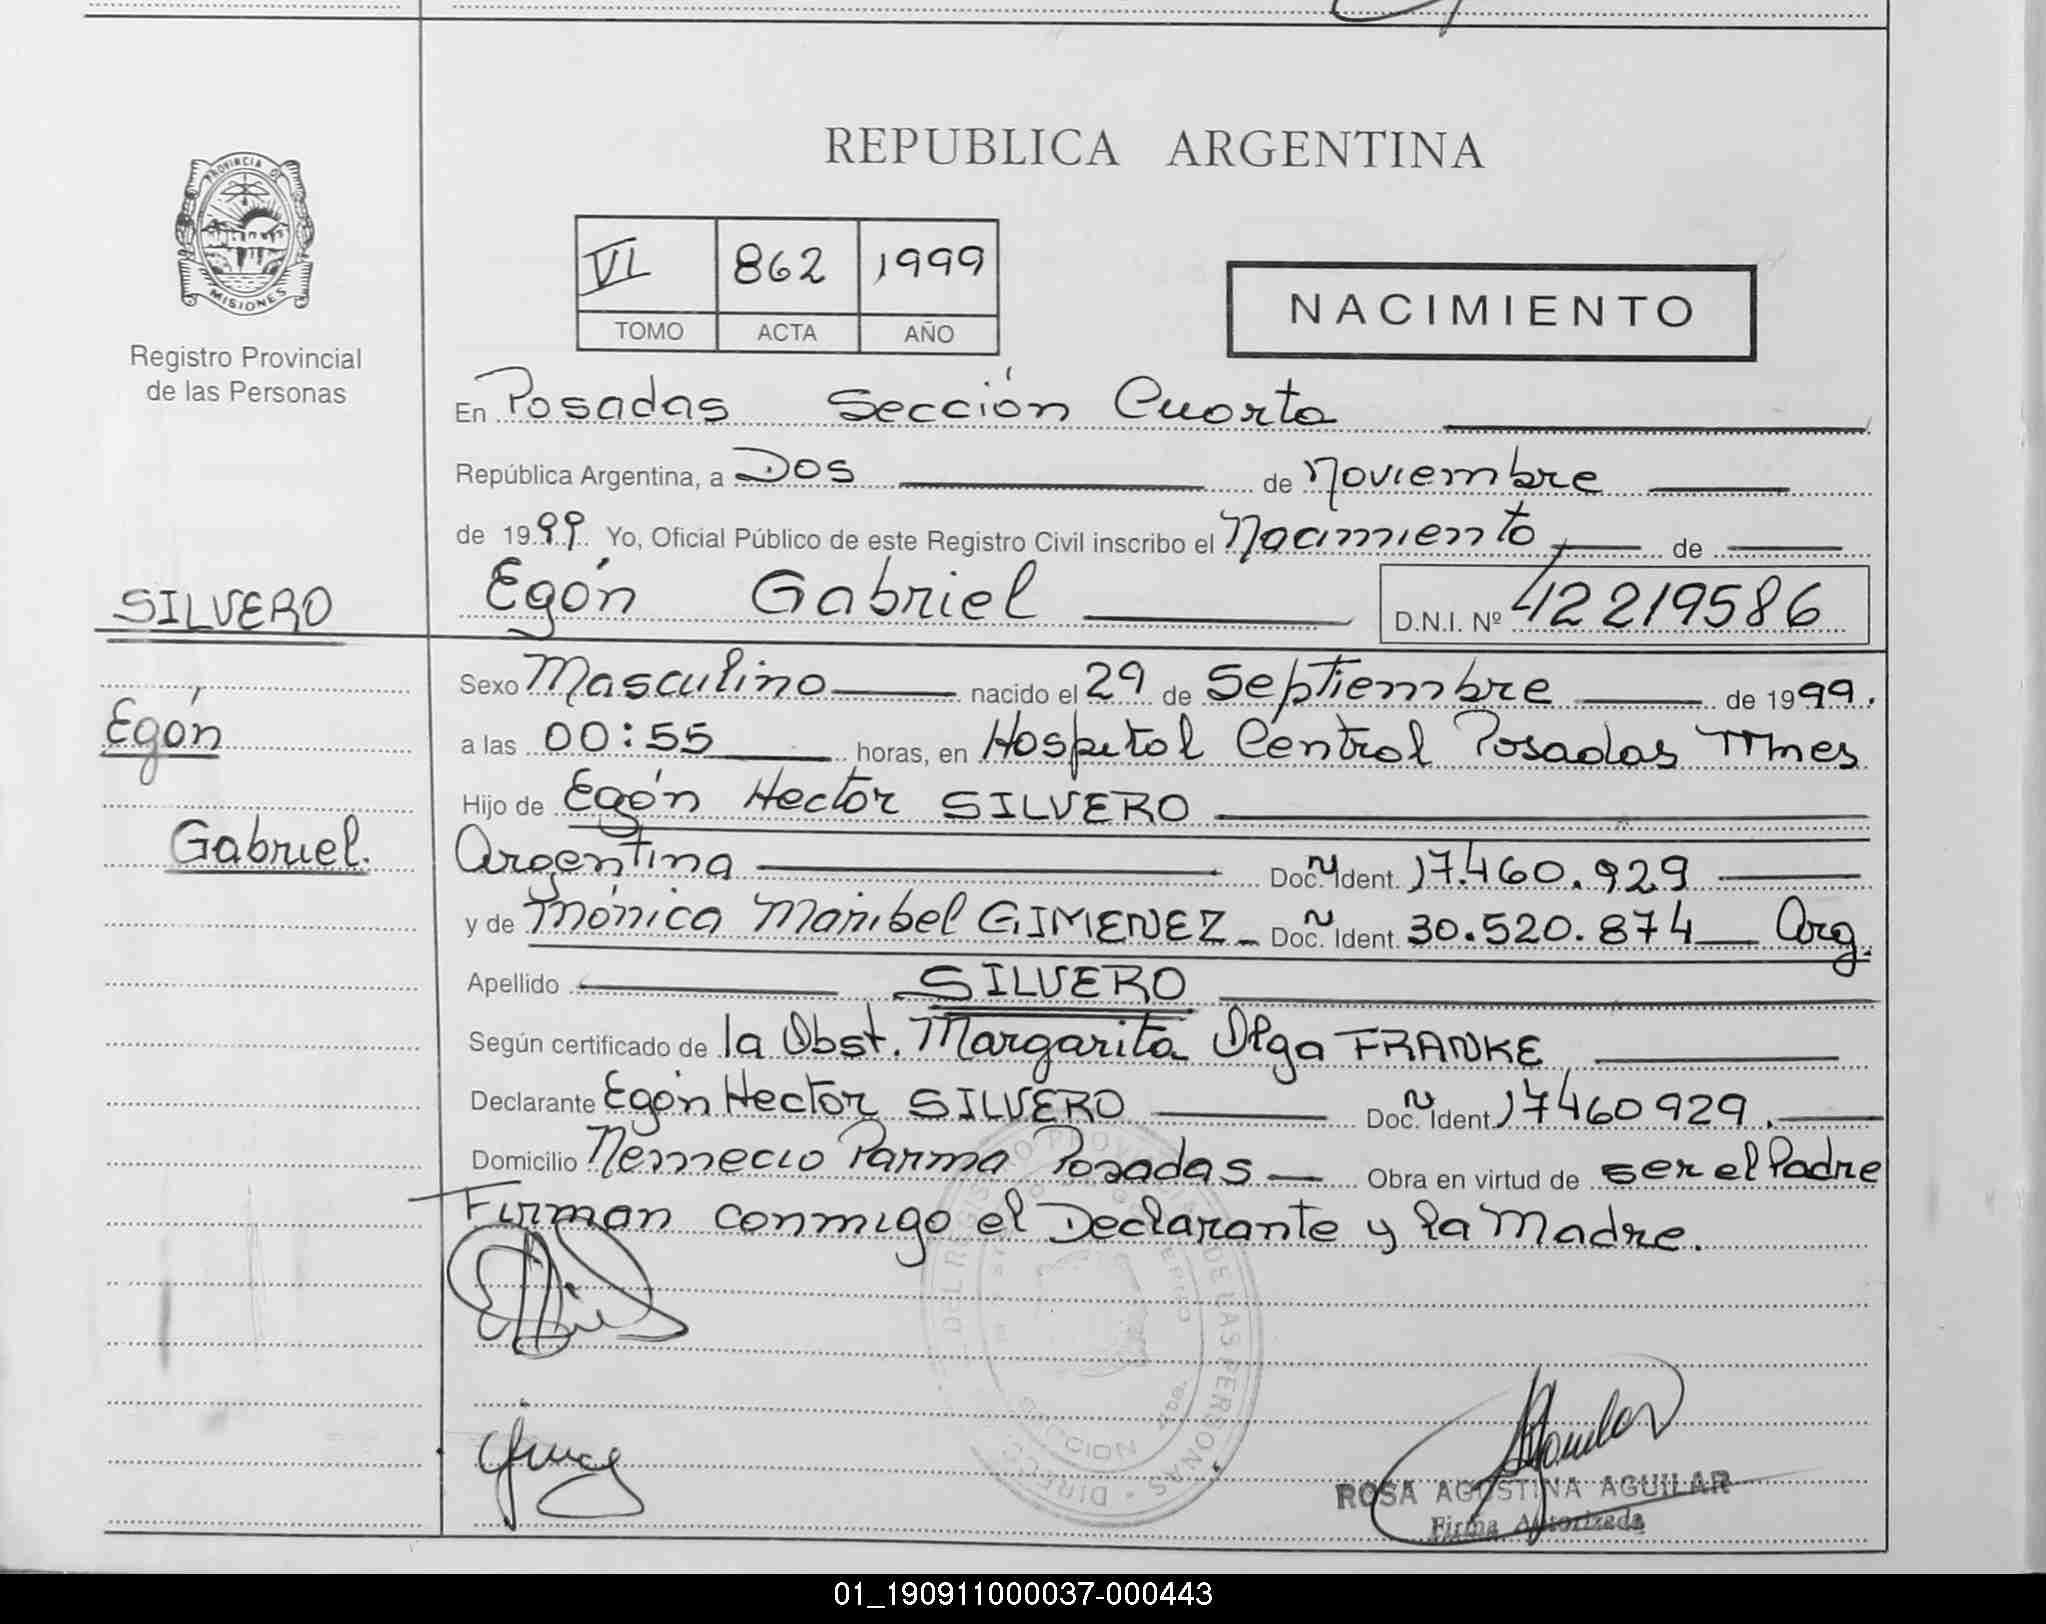 REPUBLICA ARGENTINA
PROVINCIA DE
MISIONES
Registro Provincial
de las Personas
VI 862 1999
TOMO ACTA AÑO
NACIMIENTO
En Posadas Sección Cuarta
República Argentina, a Dos de Noviembre
de 1999 Yo, Oficial Público de este Registro Civil inscribo el Nacimiento de
SILVERO
Egón Gabriel D.N.I. Nº 42219586
Sexo Masculino nacido el 29 de Septiembre de 1999.
Egón
a las 00:55 horas, en Hospital Central Posadas Mnes
Hijo de Egón Hector SILVERO
Gabriel.
Argentina Doc. Ident. 17.460.929
y de Mónica Maribel GIMENEZ Doc. Ident. 30.520.874 Arg.
Apellido SILVERO
Según certificado de la Obst. Margarita Olga FRANKE
Declarante Egón Hector SILVERO Doc. Ident. 17460929.
Domicilio Nemecio Parma Posadas Obra en virtud de ser el Padre
Firman conmigo el Declarante y la Madre.
ROSA AGOSTINA AGUILAR
Firma Autorizada
01_190911000037-000443